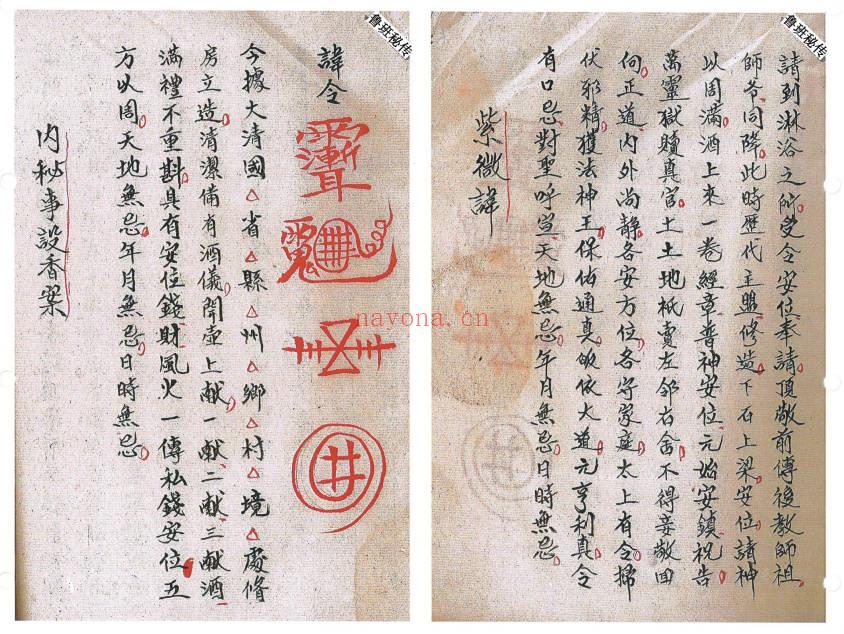 鲁班秘传
請到淋浴之所受令安位奉請頂敬前傳後教師祖
師爷同降此時歷代主盟修造下石上梁安位請神
以周滿酒上來一卷經章普神安位元始安鎮祝告
萬靈獄瀆真官土土地祇賣左邻右舍不得妄敬回
向正道内外尚静各安方位各守家庭太上有令掃
伏邪精獲法神王保佑通真皈依大道元亨利真令
有口忌對聖呼豈天地無忌年月無忌日時無忌
紫微諱
鲁班秘传
諱令
今據大清國△省△縣△州△鄉△村△境△處修
房立造清潔備有酒儀開壺上献一献二献三献酒
滿禮不重斟具有安位錢財風火一傳私錢安位五
方以周天地無忌年月無忌日時無忌
内秘事設香案
navona.cn